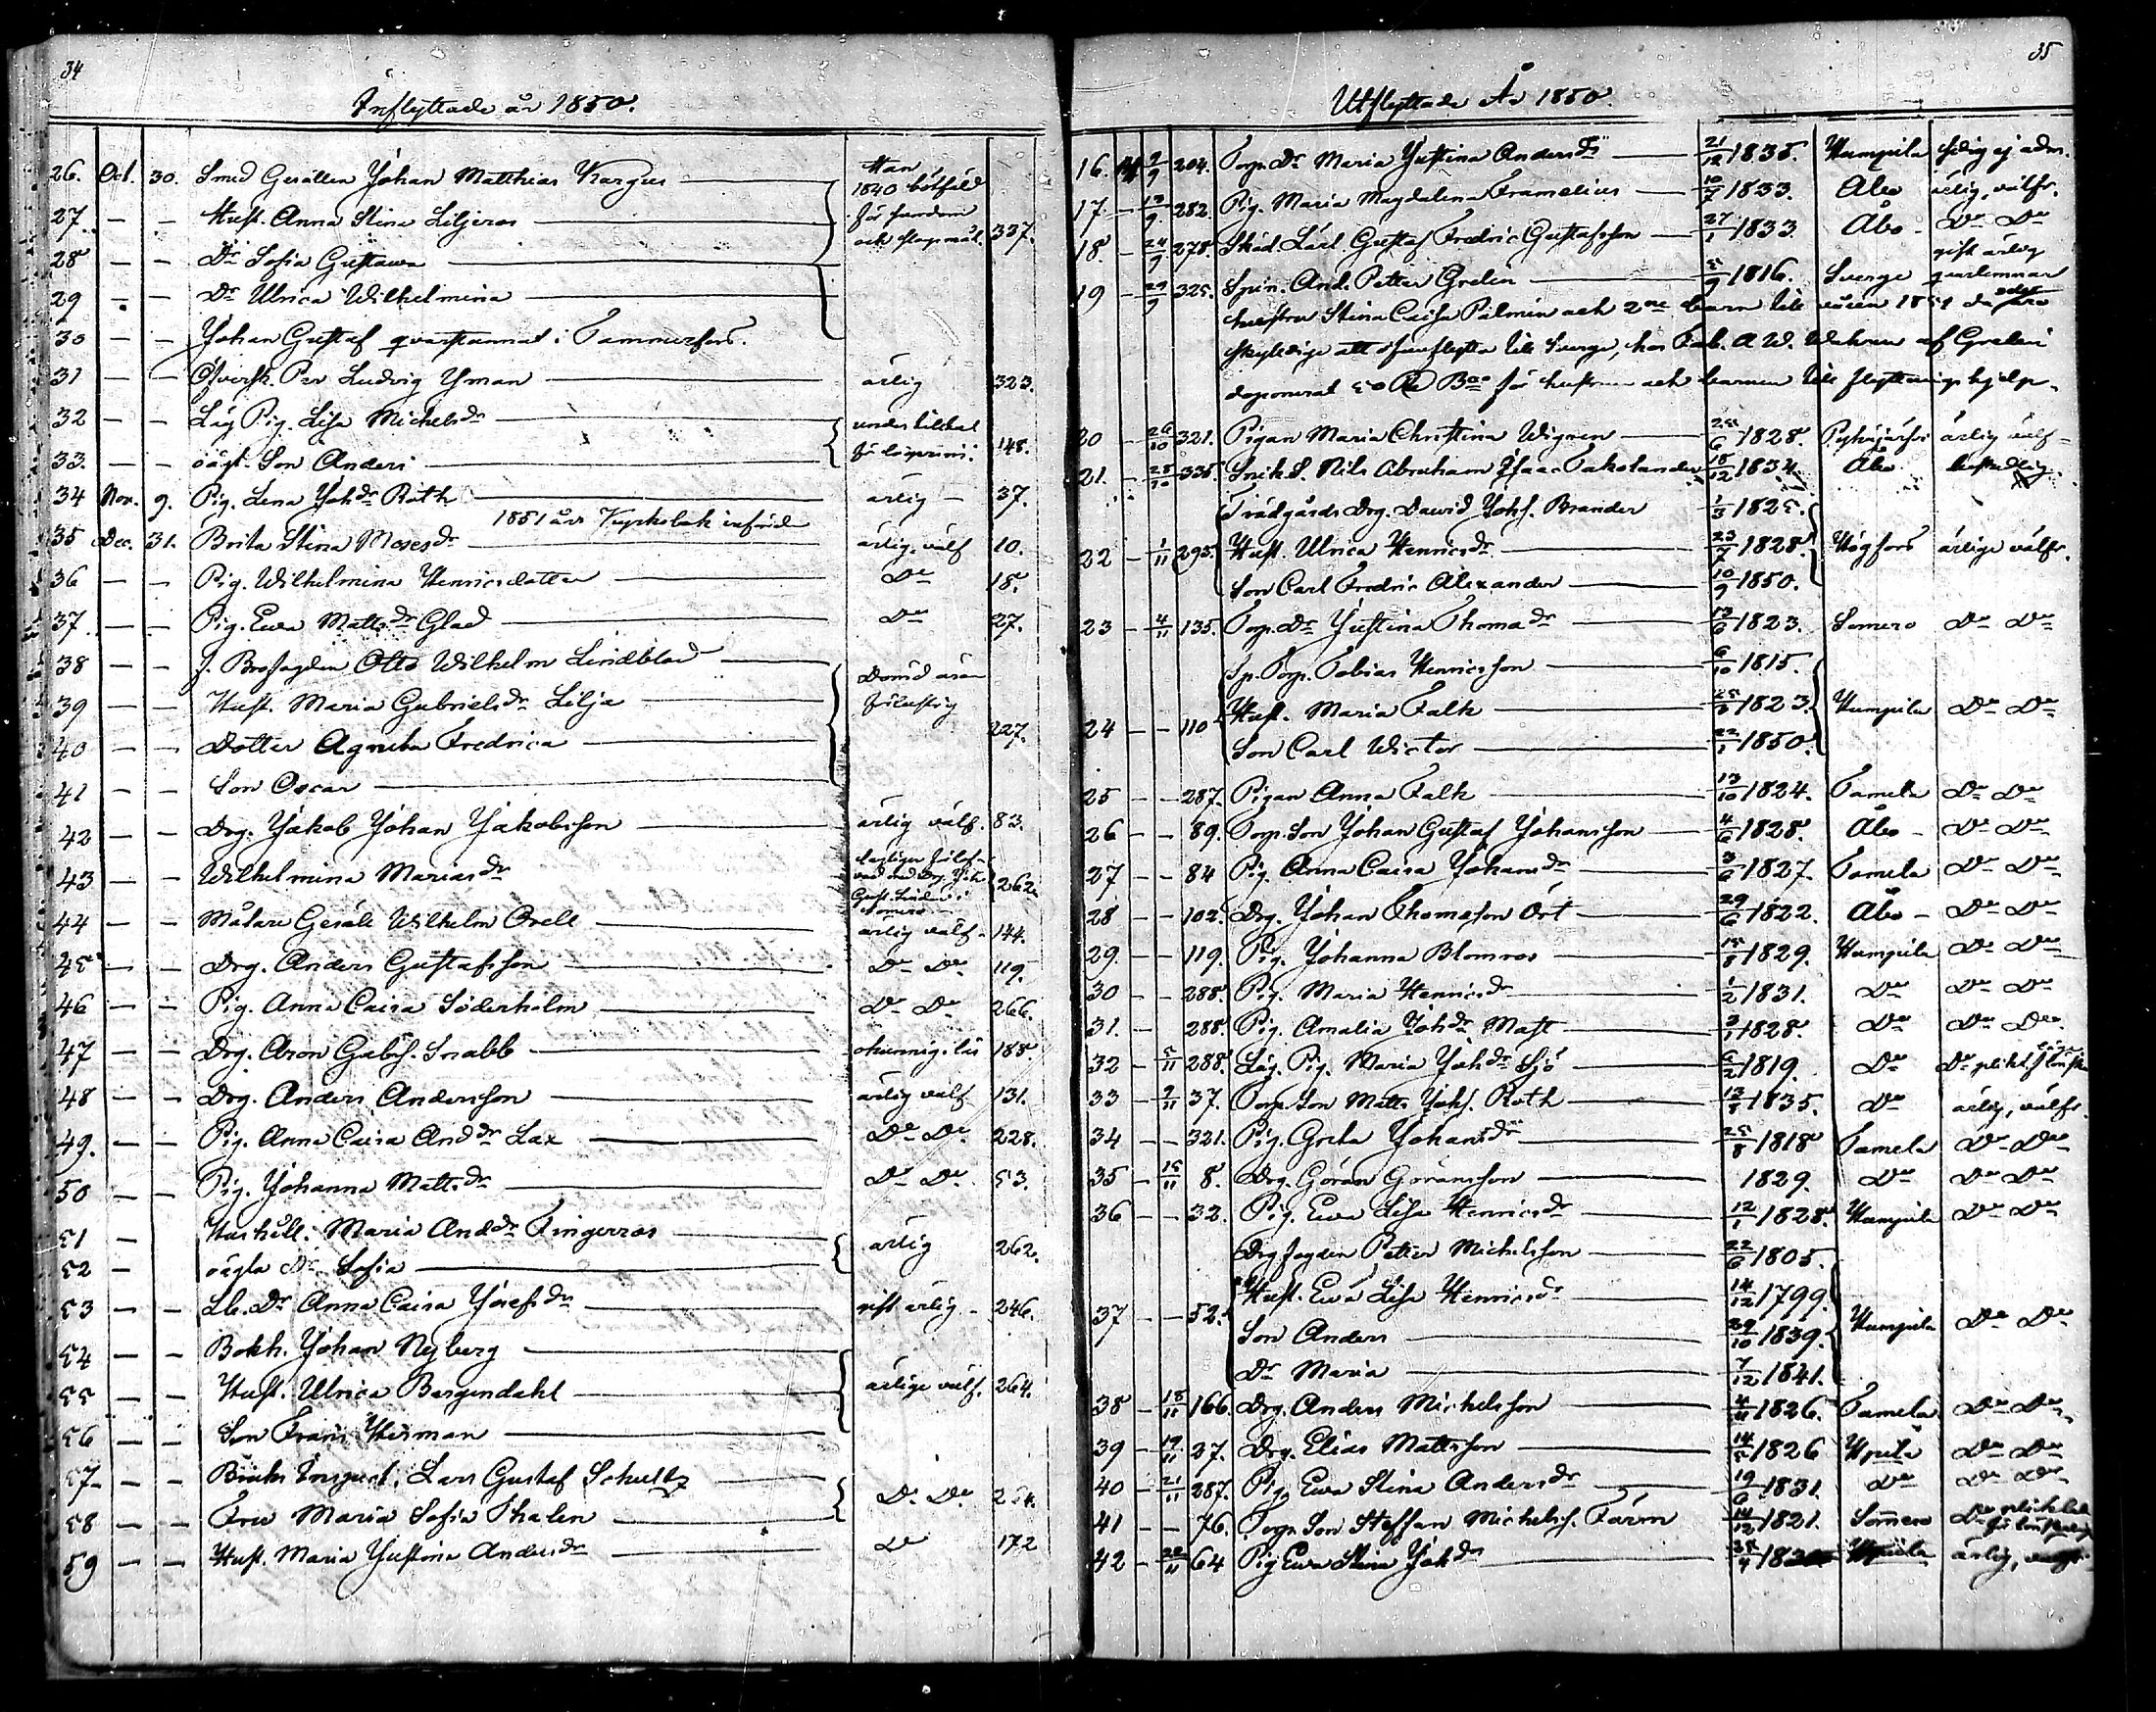 34
Inflyttade år 1850.
26. Oct. 30. Smed Gesällen Johan Matthias Kargus Han
1840 bötfäld
27. — — Hust. Anna Stina Liljeros för
och 337.
28 — — Dr Sofia Gustava
29 — — Dr Ulrica Wilhelmina
30 — — Johan Gustaf qvarstannat i Tammerfors.
31 — — Ludvig Yman ärlig 323.
32 — — Läg. Pig. Lisa Michelsdr
33. — — oägt. Son Anders 148.
34 Nov. 9. Pig. Lena Johdr Roth ärlig — 37.
1851 års införd
35 Dec. 31. Brita Stina Mosesdr ärlig, välf 10.
36 — — Pig. Wilhelmina Henricsdotter Do 18.
37 — — Pig. Ewa Mattsdr Glad Do 27.
38 — — f. Otto Wilhelm Lindblad
39 — — Hust. Maria Gabrielsdr Lilja 227.
40 — — Dotter Agneta Fredrica
41 — — Son Oscar
42 — — Drg. Jakob Johan Jakobsson ärlig välf. 83.
43 — — Wilhelmina Mariasdr 262.
44 — — Målare Gesäll Wilhelm Orell ärlig välf. 144.
45 — — Drg. Anders Gustafsson Do Do 119.
46 — — Pig. Anna Caisa Söderholm Do Do 266.
47 — — Drg. Aron Gabrs. Snabb okunnig. 188.
48 — — Drg. Anders Andersson ärlig välf 131.
49. — — Pig. Anna Caisa Anddr Lax Do Do 228.
50 — — Pig. Johanna Mattsdr Do Do 53.
51 — Hushåll. Maria Anddr Fingerroos ärlig 262.
52 — oägta Dr Sofia
53 — — Anna Caisa Josefsdr gift ärlig — 246.
54 — — Bokh. Johan Nyberg
55 — — Hust. Ulrica Bergendahl ärlige välf. 264.
56 — — Son Frans Herman
57 — Bruks Inspect. Lars Gustaf Schultz
58 — — Fru Maria Sofia Thalen Do Do
59 — — Hust. Maria Justina Andersdr Do 172
35
Utflyttade År 1850.
16. 7/9 204. Torp. Dr Maria Justina Andersdr 21/12 1835. Humpila ej adm.
17. — 13/9 282. Pig. Maria Magdalena Framelius 10/7 1833. Åbo ärlig, välfr.
18. — 24/9 278. Carl Gustaf Fredric Gustafsson 27/1 1833 Åbo — Do Do
gift ärlig
19 — 29/9 325. And. Petter Grelin 5/9 1816. Sverge qvarlemnar
hustru Stina Caisa Palmin och 2ne barn till våren 1851 då
skyldige att flytta till Sverge, har Fab. A W. Wahren af Grelin
deponerat 50 R för hustrun och barnen till flyttnings hjelp.
20 — 26/10 321. Pigan Maria Christina Wigren 25/6 1828. Pyhäjärfvi ärlig välf —
21. — 28/10 335. Nils Abraham Isaac Takolander 18/2 1834. Åbo
Trädgårds Drg. David Johs. Brander 1/3 1825.
22 — 1/11 295. Hust. Ulrica Henricsdr 23/7 1828. Högfors ärlige välfr.
Son Carl Fredric Alexander 10/9 1850.
23 — 4/11 135. Torp. Dr Justina Thomadr 13/6 1823. Somero Do Do
Sp. Torp. Tobias Henricsson 6/10 1815.
24 — — 110 Hust. Maria Falk 1823. Humpila Do Do
Son Carl Wictor 22/1 1850.
25 — — 287. Pigan Anna Falk 13/10 1824. Tamela Do Do
26 — — 89. Torp. Son Johan Gustaf Johansson 4/6 1828. Åbo — Do Do
27 — — 84 Pig. Anna Caisa Johansdr 1827. Tamela Do Do
28 — — 102. Drg. Johan Thomasson Ört 29/6 1822. Åbo — Do Do
29. — — 119. Pig. Johanna Blomroos 1829. Humpila Do Do
30 — — 288. Pig. Maria Henricsdr 1/2 1831. Do Do Do
31. — 288. Pig. Amalia Johdr Mast 3/1 1828. Do Do Do
32 — 5/11 288. Läg. Pig. Maria Johdr Sjö 1819. Do Do
33 — 9/11 37. Torp. Son Matts Johs. Roth 1835. Do ärlig, välfr.
34 — — 321. Pig. Greta Johansdr 25/8 1818 Tamela Do Do
35 — 15/11 8. Drg. Göran Göransson 1829. Do Do Do
36 — — 32. Pig. Ewa Lisa Henricsdr 12/1 1828. Humpila Do Do
Petter Michelsson 22/6 1805.
37 — — 52. Hust. Ewa Lisa Henricsdr 14/12 1799. Humpila Do Do
Son Anders 29/10 1839.
Dr Maria 7/12 1841.
38 — 18/11 166. Drg. Anders Michelsson 4/11 1826. Tamela Do Do
39 — 19/11 27. Drg. Elias Mattsson 1826 Do Do
40 — 21/11 287. Pig. Ewa Stina Andersdr 19/6 1831. Do Do Do
41 — — 76. Torp. Son Staffan Michelss. Färm 14/12 1821. Somero Do
42 — 64 Pig Ewa Stina Johdr ärlig,